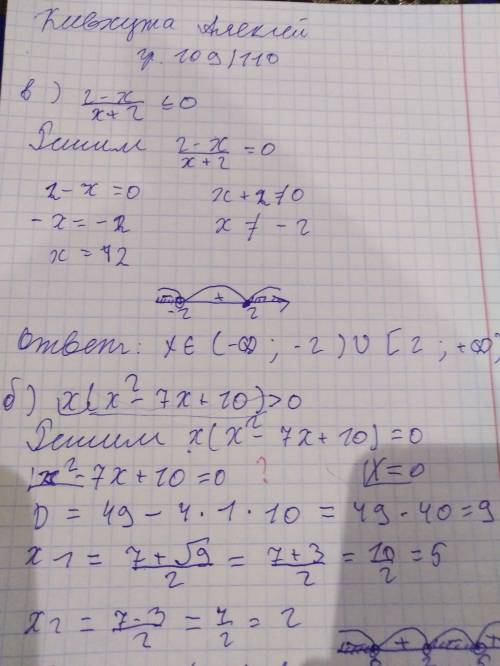 Алексей
гр. 109/110
в) (2-x)/(x+2) ≤ 0
Решим (2-x)/(x+2) = 0
2-x = 0 x+2 ≠ 0
-x = -2 x ≠ -2
x = +2
-2 + 2
Ответ: x ∈ (-∞; -2) ∪ [2; +∞)
б) x(x²-7x+10)>0
Решим x(x²-7x+10)=0
x²-7x+10=0 ? x=0
D = 49-4·1·10 = 49-40=9
x1 = (7+√9)/2 = (7+3)/2 = 10/2 = 5
x2 = (7-3)/2 = 4/2 = 2
+ +